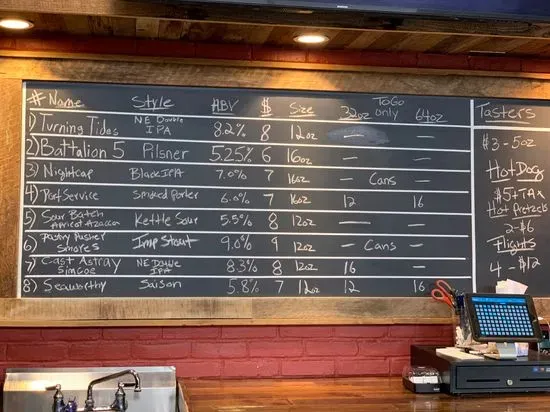 # Name Style ABV $ Size 32oz ToGo only 64oz
1) Turning Tides NE Double IPA 8.2% 8 12oz — —
2) Battalion 5 Pilsner 5.25% 6 16oz — —
3) Nightcap Black IPA 7.0% 7 16oz — Cans —
4) Port Service Smoked Porter 6.0% 7 16oz 12 16
5) Sour Batch Apricot Azacca Kettle Sour 5.5% 8 12oz — —
6) Pastry Pusher Smores Imp Stout 9.0% 9 12oz — Cans —
7) Cast Astray Simcoe NE Double IPA 8.3% 8 12oz 16 —
8) Seaworthy Saison 5.8% 7 12oz 12 16
Tasters
$3-5oz
Hot Dog
$5+TAX
Hot Pretzels
2-$6
Flights
4-$12